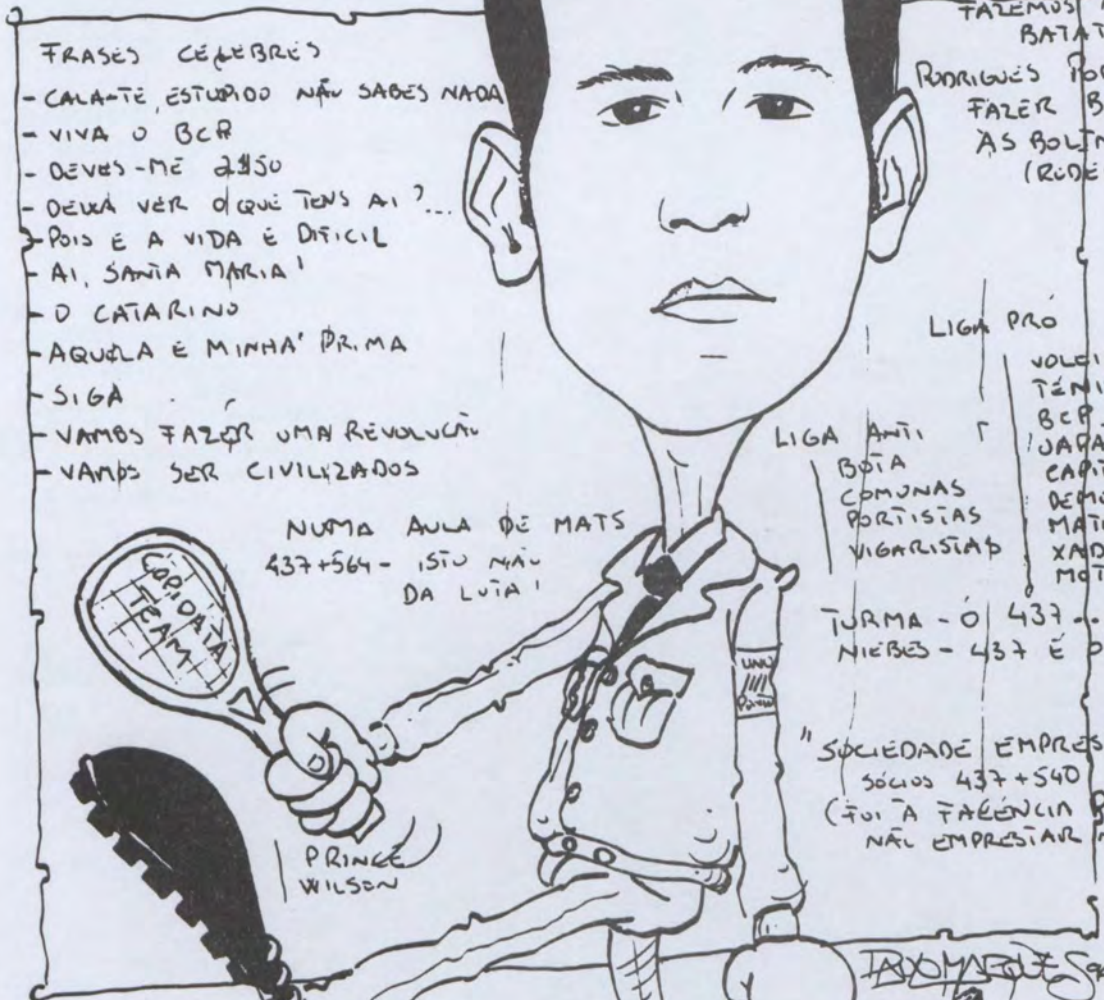 FRASES CÉLEBRES
- CALA-TE, ESTUPIDO NÃO SABES NADA
- VIVA O BCP
- DEVES-ME 2$50
- DEIXA VER O QUE TENS AI?...
- POIS E A VIDA E DIFICIL
- AI, SANTA MARIA!
- O CATARINO
- AQUELA E MINHA PRIMA
- SIGA
- VAMOS FAZER UMA REVOLUÇÃO
- VAMOS SER CIVILIZADOS
NUMA AULA DE MATS
437+564 - ISTO NÃO
DA LUTA!
COPIDATA
TEAM
PRINCE
WILSON
FAZEMOS
BATAT
RODRIGUES POR
FAZER B
AS BOLIN
(RUDE
LIGA PRÓ
VOLEI
TÉNI
BCP
JAPA
CAPIT
DEMO
MAT
XAD
MOT
LIGA ANTI
BOTA
COMUNAS
PORTISTAS
VIGARISTAS
TURMA - Ó 437...
NIEBES - 437 É O
"SOCIEDADE EMPRES
SÓCIOS 437+540
(FOI À FALÊNCIA P
NÃO EMPRESTAR